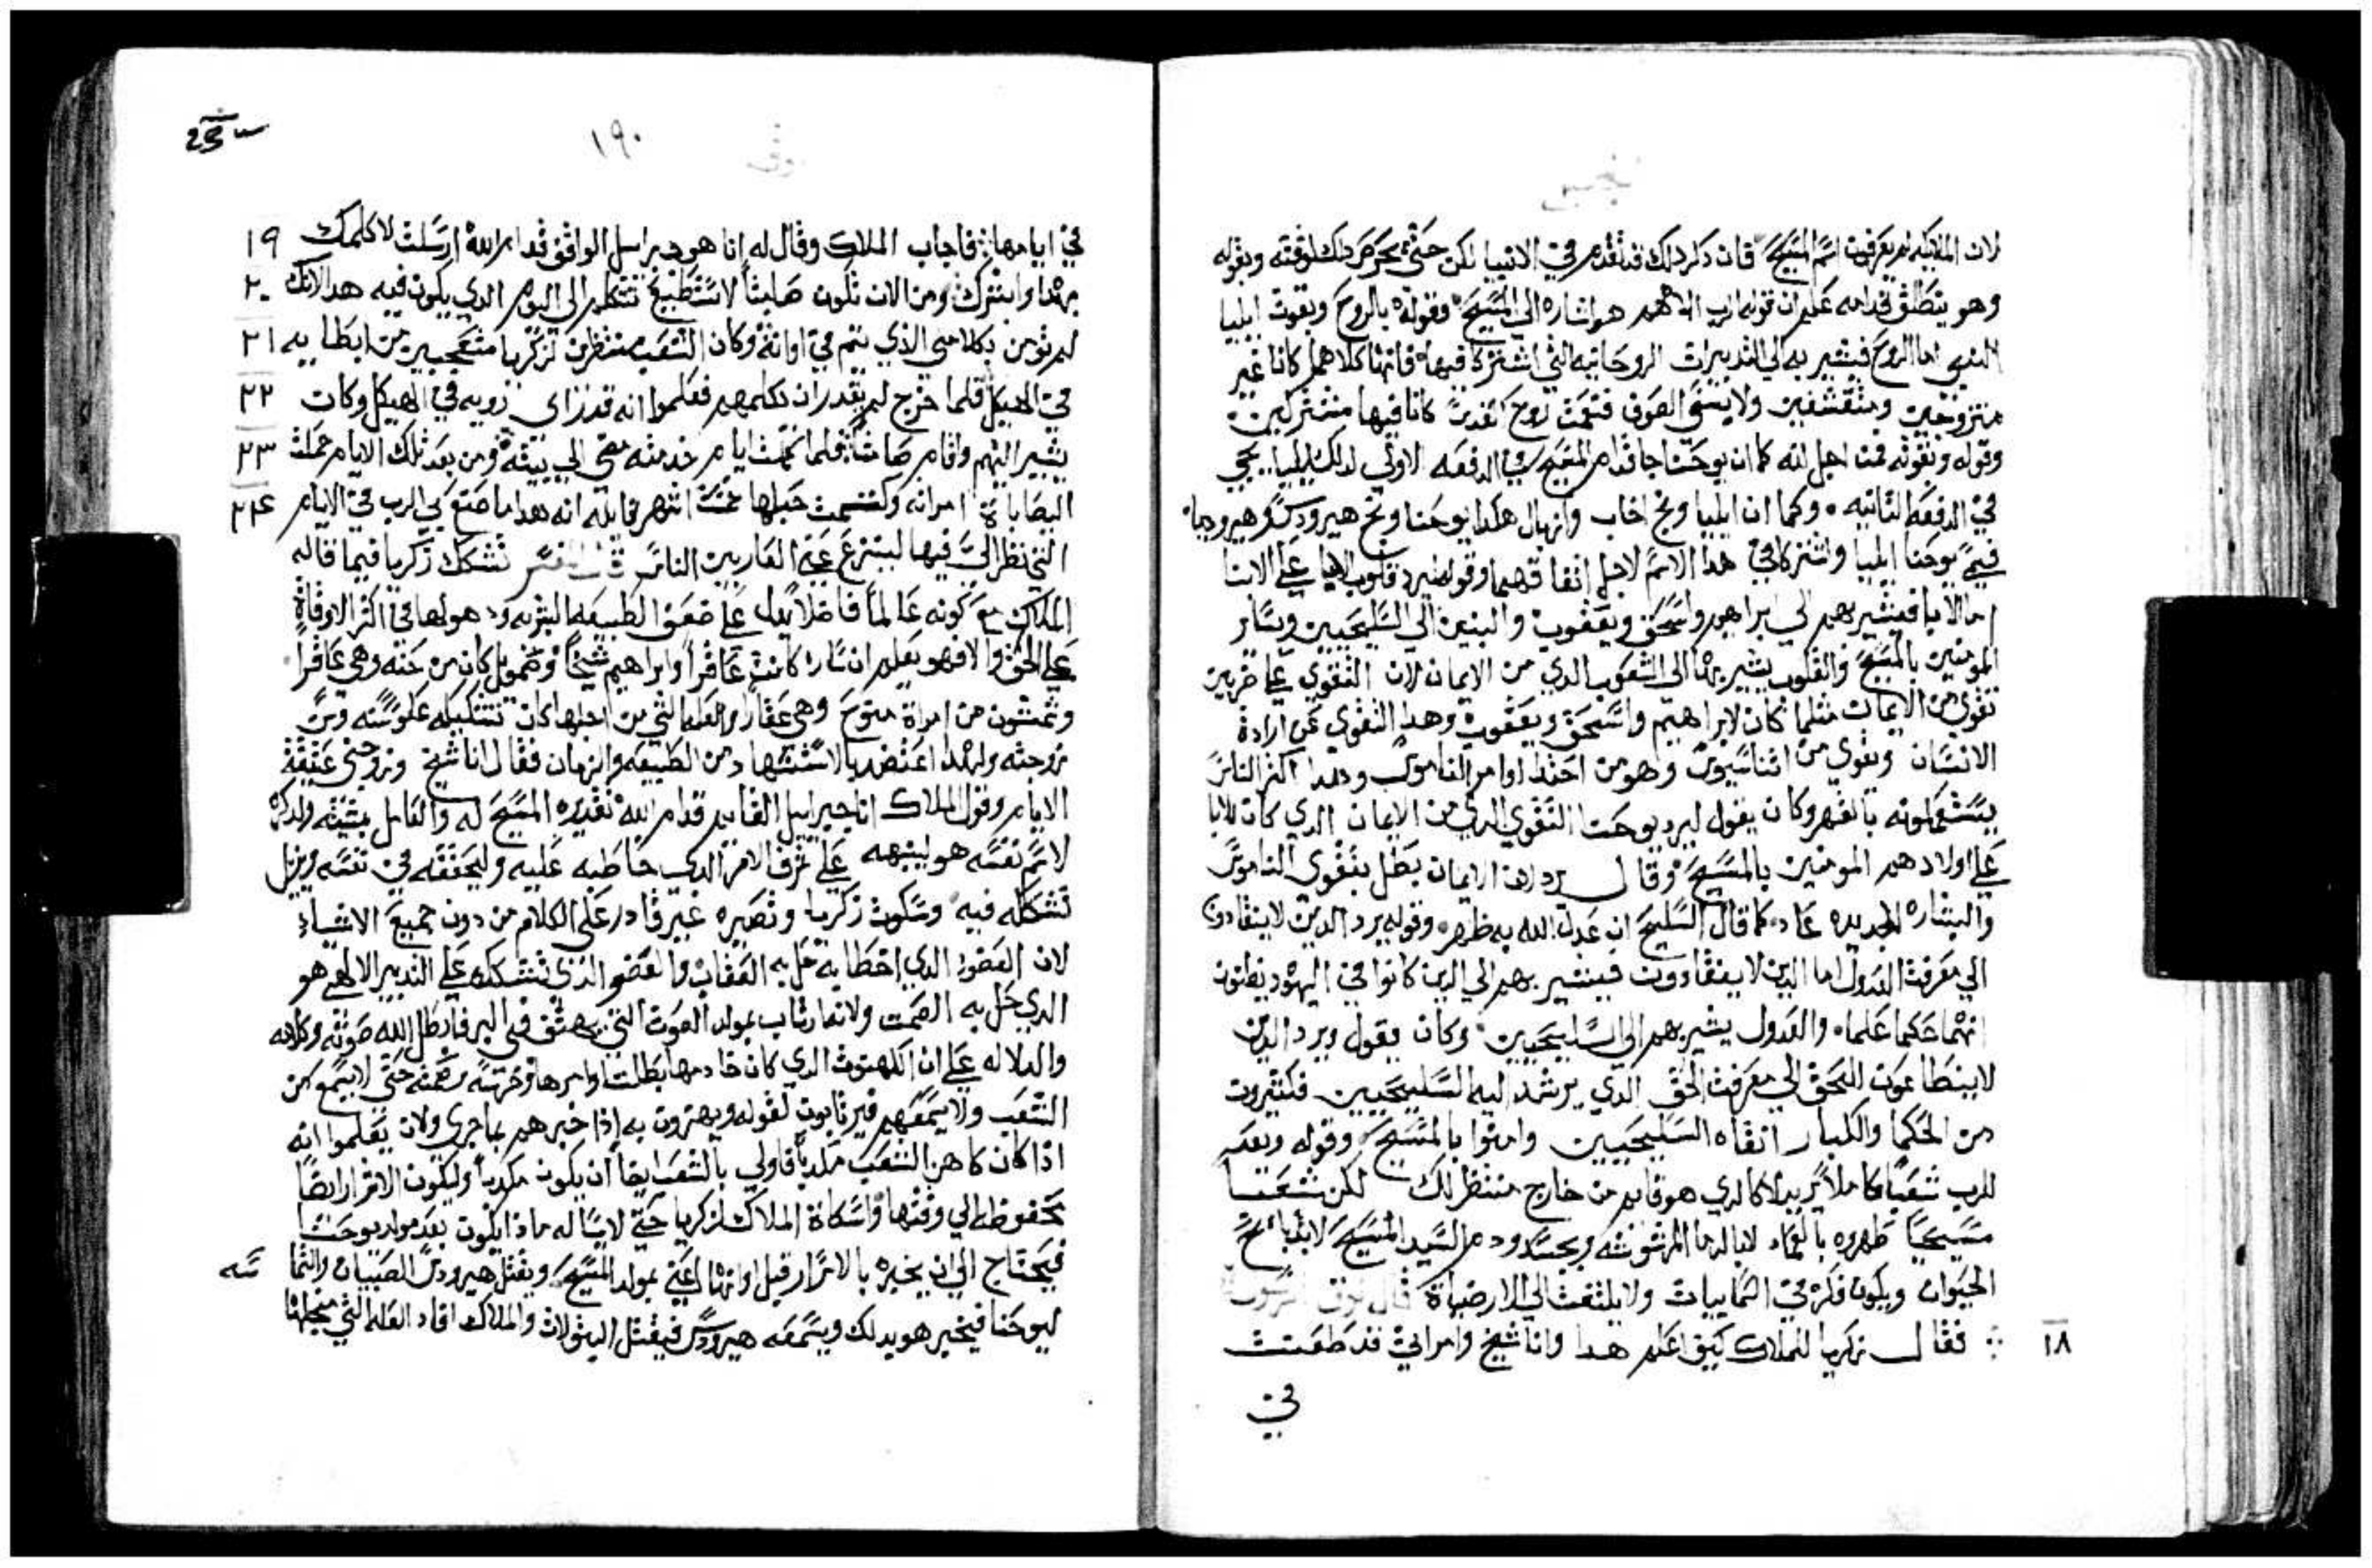 لان الملايكه لم يعرفون اسم المسيح فان دكر دلك قد تقدم في الانبيا لكن حتى دلك لوقته وبقوله
وهو ينطلق قدامه علم ان قوله الرب الاههم هو اشاره الى المسيح وقوله بالروح وبقوت ايليا
النبي اما الروح فيشير به الى التدبيرات الروحانيه التي اشتركا فيها فانهما كلاهما كانا غير
متزوجين ومتقشفين ولابسي الصوف فتمت روح كانا فيها مشتركين
وقوله وبقوته فمن اجل انه كما ان يوحنا جا قدام المسيح في الدفعه الاولى لدلك ايليا يجي
في الدفعه التانيه وكما ان ايليا وبخ اخاب وازبال هكدا يوحنا وبخ هيرودس وهيروديا
فسمي يوحنا ايليا واشتركا في هدا الاسم لاجل اتفاقهما وقوله ليرد قلوب الابا على الابنا
اما الابا فيشير بهم الى ابراهيم واسحق ويعقوب والبنين الى السليحيين وساير
المومنين بالمسيح والقلوب يشير بها الى الشعوب الدي من الايمان لان التقوي على ضربين
تقوي من الايمان مثلما كان لابراهيم واسحق ويعقوب وهدا التقوي عن ارادة
الانسان وتقوي من الناموس وهو من اخد اوامر الناموس وهدا اكثر الناس
يستعملونه بالقهر وكان يقول ليرد يوحنا التقوي الدي من الايمان الدي كان للابا
على اولادهم المومنين بالمسيح وقال يرد لان الايمان بطل بتقوى الناموس
والبشاره الجديده عاد كما قال السليح ان عدل الله به ظهر وقوله يرد الدين لا ينقادون
الى معرفت العدول اما الدين لا ينقادون فيشير بهم الى الدين كانوا في اليهود يظنون
انهما حكما علما والعدول يشير بهم الى السليحيين وكان يقول ويرد الدين
لا ينطاعون للحق الى معرفت الحق الدي يرشد اليه السليحيين فكتيرون
من الحكما والكبار اتقاه السليحيين وامنوا بالمسيح وقوله ويعد
للرب شعبا كاملا يريد لا كالدي هو قايم من خارج منتظر لك لكن شعبا
مسيحيا طهروه بالعماد لا بالدما المرشوشه وبجسد ودم السيد المسيح لا بدبايح
الحيوان ويكون فكره في السماييات ولا يلتفت الى الارضياة
١٨ فقال زكريا للملاك كيف اعلم هدا وانا شيخ وامراتي قد طعنت
في
١٩٠
في ايامها فاجاب الملاك وقال له انا هو جبراييل الواقف قدام الله ارسلت لاكلمك ١٩
بهدا وابشرك ومن الان تكون صامتا لا تستطيع تتكلم الى اليوم الدي يكون فيه هدا لانك ٢٠
لم تومن بكلامي الذي يتم في اوانه وكان الشعب منتظرين لزكريا متعجبين من ابطايه ٢١
في الهيكل فلما خرج لم يقدر ان يكلمهم فعلموا انه قد راى رويه في الهيكل وكان ٢٢
يشير اليهم واقام صامتا فلما كملت ايام خدمته مضى الى بيته ومن بعد تلك الايام حملت ٢٣
اليصاباة امراته وكتمت حبلها خمسة اشهر قايله انه هدا ما صنع بي الرب في الايام ٢٤
التي نظر الي فيها لينزع عني العار بين الناس تشكك زكريا فيما قاله
الملاك مع كونه عالما فاضلا يدل على ضعف الطبيعه البشريه
على الحق والا فهو يعلم ان سارا كانت عاقرا وابراهيم شيخا وصمويل كان من حنه وهي عاقرا
وشمشون من امراة منوح وهي عقارا والعله التي من اجلها كان تشككه علو سنه وسن
زوجته ولهدا اعتضد بالاستشهاد من الطبيعه والزمان فقال انا شيخ وزوجتي عتيقة
الايام وقول الملاك انا جبراييل القايم قدام الله
لاسم نفسه هو لينبهه على شرف الامر الدي خاطبه عليه وليحققه في نفسه ويزيل
تشككه فيه وسكوت زكريا وتصيره غير قادر على الكلام من دون جميع الاشياء
لان العضو الدي اخطا به حل به العقاب والعضو الذي تشكك على التدبير الالهي هو
الدي حل به الصمت
والدلاله على ان الكهنوت الدي كان خادمها بطلت اوامرها حتى لا يسمع من
الشعب ولا يسمعهم لقوله ويهزون به اذا خبرهم بما جرى ولان يعلموا انه
اذا كان كاهن الشعب مكدبا فاولي بالشعب ايضا ان يكون مكدبا وليكون الاقرار ايضا
محفوظه الى وقتها واسكاة الملاك لزكريا حتى لا يساله ماذا يكون بعد مولد يوحنا
فيحتاج الى ان يخبره بالاسرار قبل اوانها اعني بمولد المسيح وبقتل هيرودس الصبيان
ليوحنا فيخبر هو بدلك ويسمعه هيرودس فيقتل البتولان والملاك افاد العله التي من اجلها